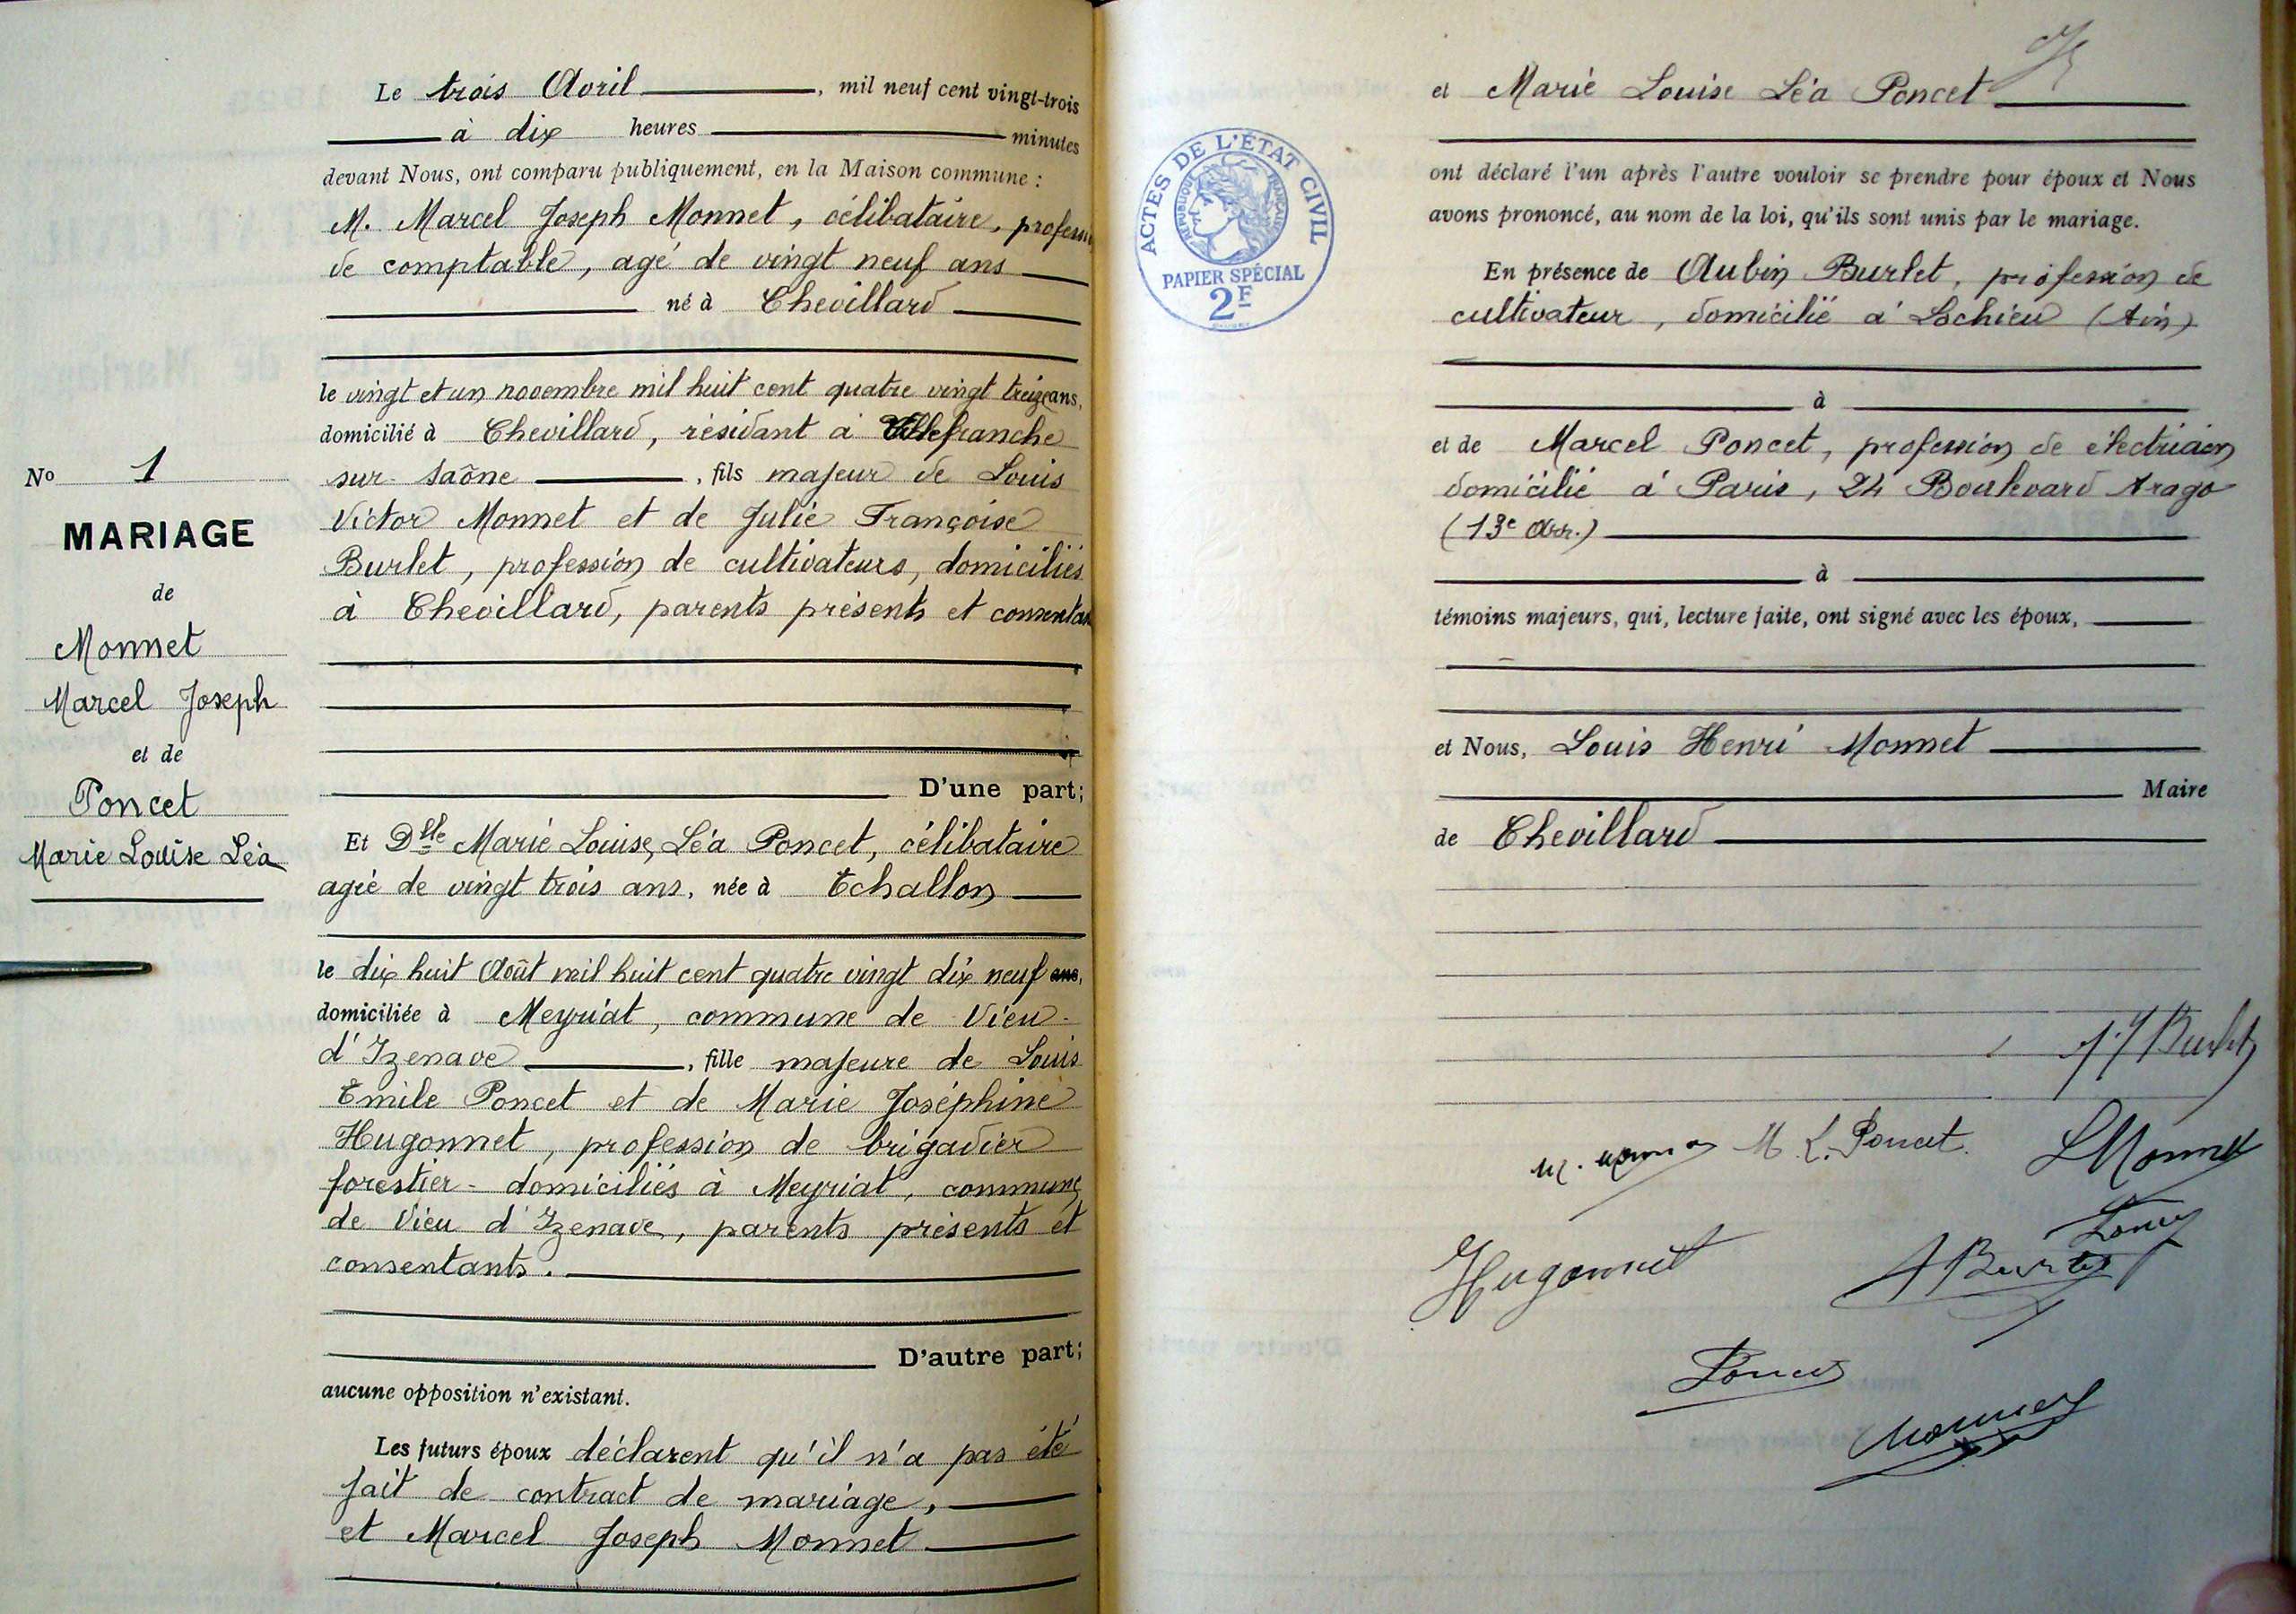 No 1
MARIAGE
de
Monnet
Marcel Joseph
et de
Poncet
Marie Louise Léa
Le trois Avril, mil neuf cent vingt-trois
à dix heures minutes
devant Nous, ont comparu publiquement, en la Maison commune :
M. Marcel Joseph Monnet, célibataire, profession
de comptable, agé de vingt neuf ans
né à Chevillard
le vingt et un novembre mil huit cent quatre vingt treize ans,
domicilié à Chevillard, résidant à Villefranche
sur Saône, fils majeur de Louis
Victor Monnet et de Julie Françoise
Burlet, profession de cultivateurs, domiciliés
à Chevillard, parents présents et consentan
D'une part;
Et Dlle Marie Louise, Léa Poncet, célibataire
agée de vingt trois ans, née à Echallon
le dix huit Août mil huit cent quatre vingt dix neuf ans,
domiciliée à Meyriat, commune de Vieu-
d'Izenave, fille majeure de Louis
Emile Poncet et de Marie Joséphine
Hugonnet, profession de brigadier
forestier - domiciliés à Meyriat, commune
de Vieu d'Izenave, parents présents et
consentants.
D'autre part;
aucune opposition n'existant.
Les futurs époux déclarent qu'il n'a pas été
fait de contract de mariage,
et Marcel Joseph Monnet
ACTES DE L'ÉTAT CIVIL
RÉPUBLIQUE FRANÇAISE
PAPIER SPÉCIAL
2F
et Marie Louise Léa Poncet
ont déclaré l'un après l'autre vouloir se prendre pour époux et Nous
avons prononcé, au nom de la loi, qu'ils sont unis par le mariage.
En présence de Aubin Burlet, profession de
cultivateur, domicilié à Lochieu (Ain)
à
et de Marcel Poncet, profession de électricien
domicilié à Paris, 24 Boulevard Arago
(13e Arr.)
à
témoins majeurs, qui, lecture faite, ont signé avec les époux,
et Nous, Louis Henri Monnet
Maire
de Chevillard
Burlet
M. Monnet M. L. Poncet. L Monnet
Hugonnet A Burlet
Poncet
Monnet